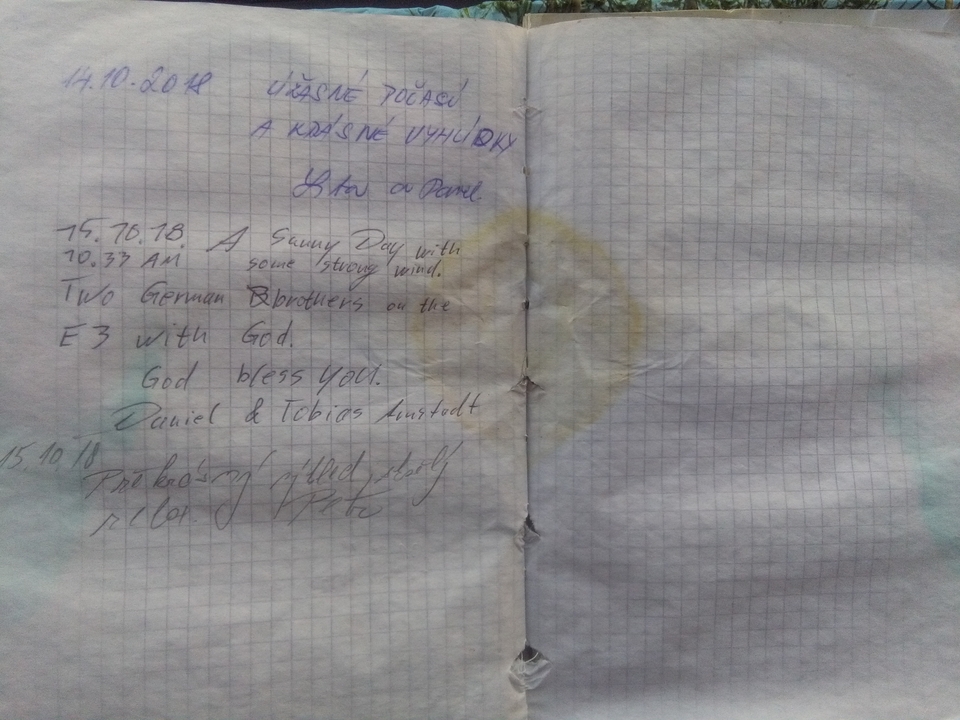 14.10.2018 ÚŽASNÉ POČASÍ
A KRÁSNÉ VYHLÍDKY
a Pavel
15.10.18. A Sunny Day with
10.33 AM some strong wind.
Two German brothers on the
E3 with God.
God bless you.
Daniel & Tobias Arnstadt
15.10.18
Překrásný výhled, skvělý
relax. Petr